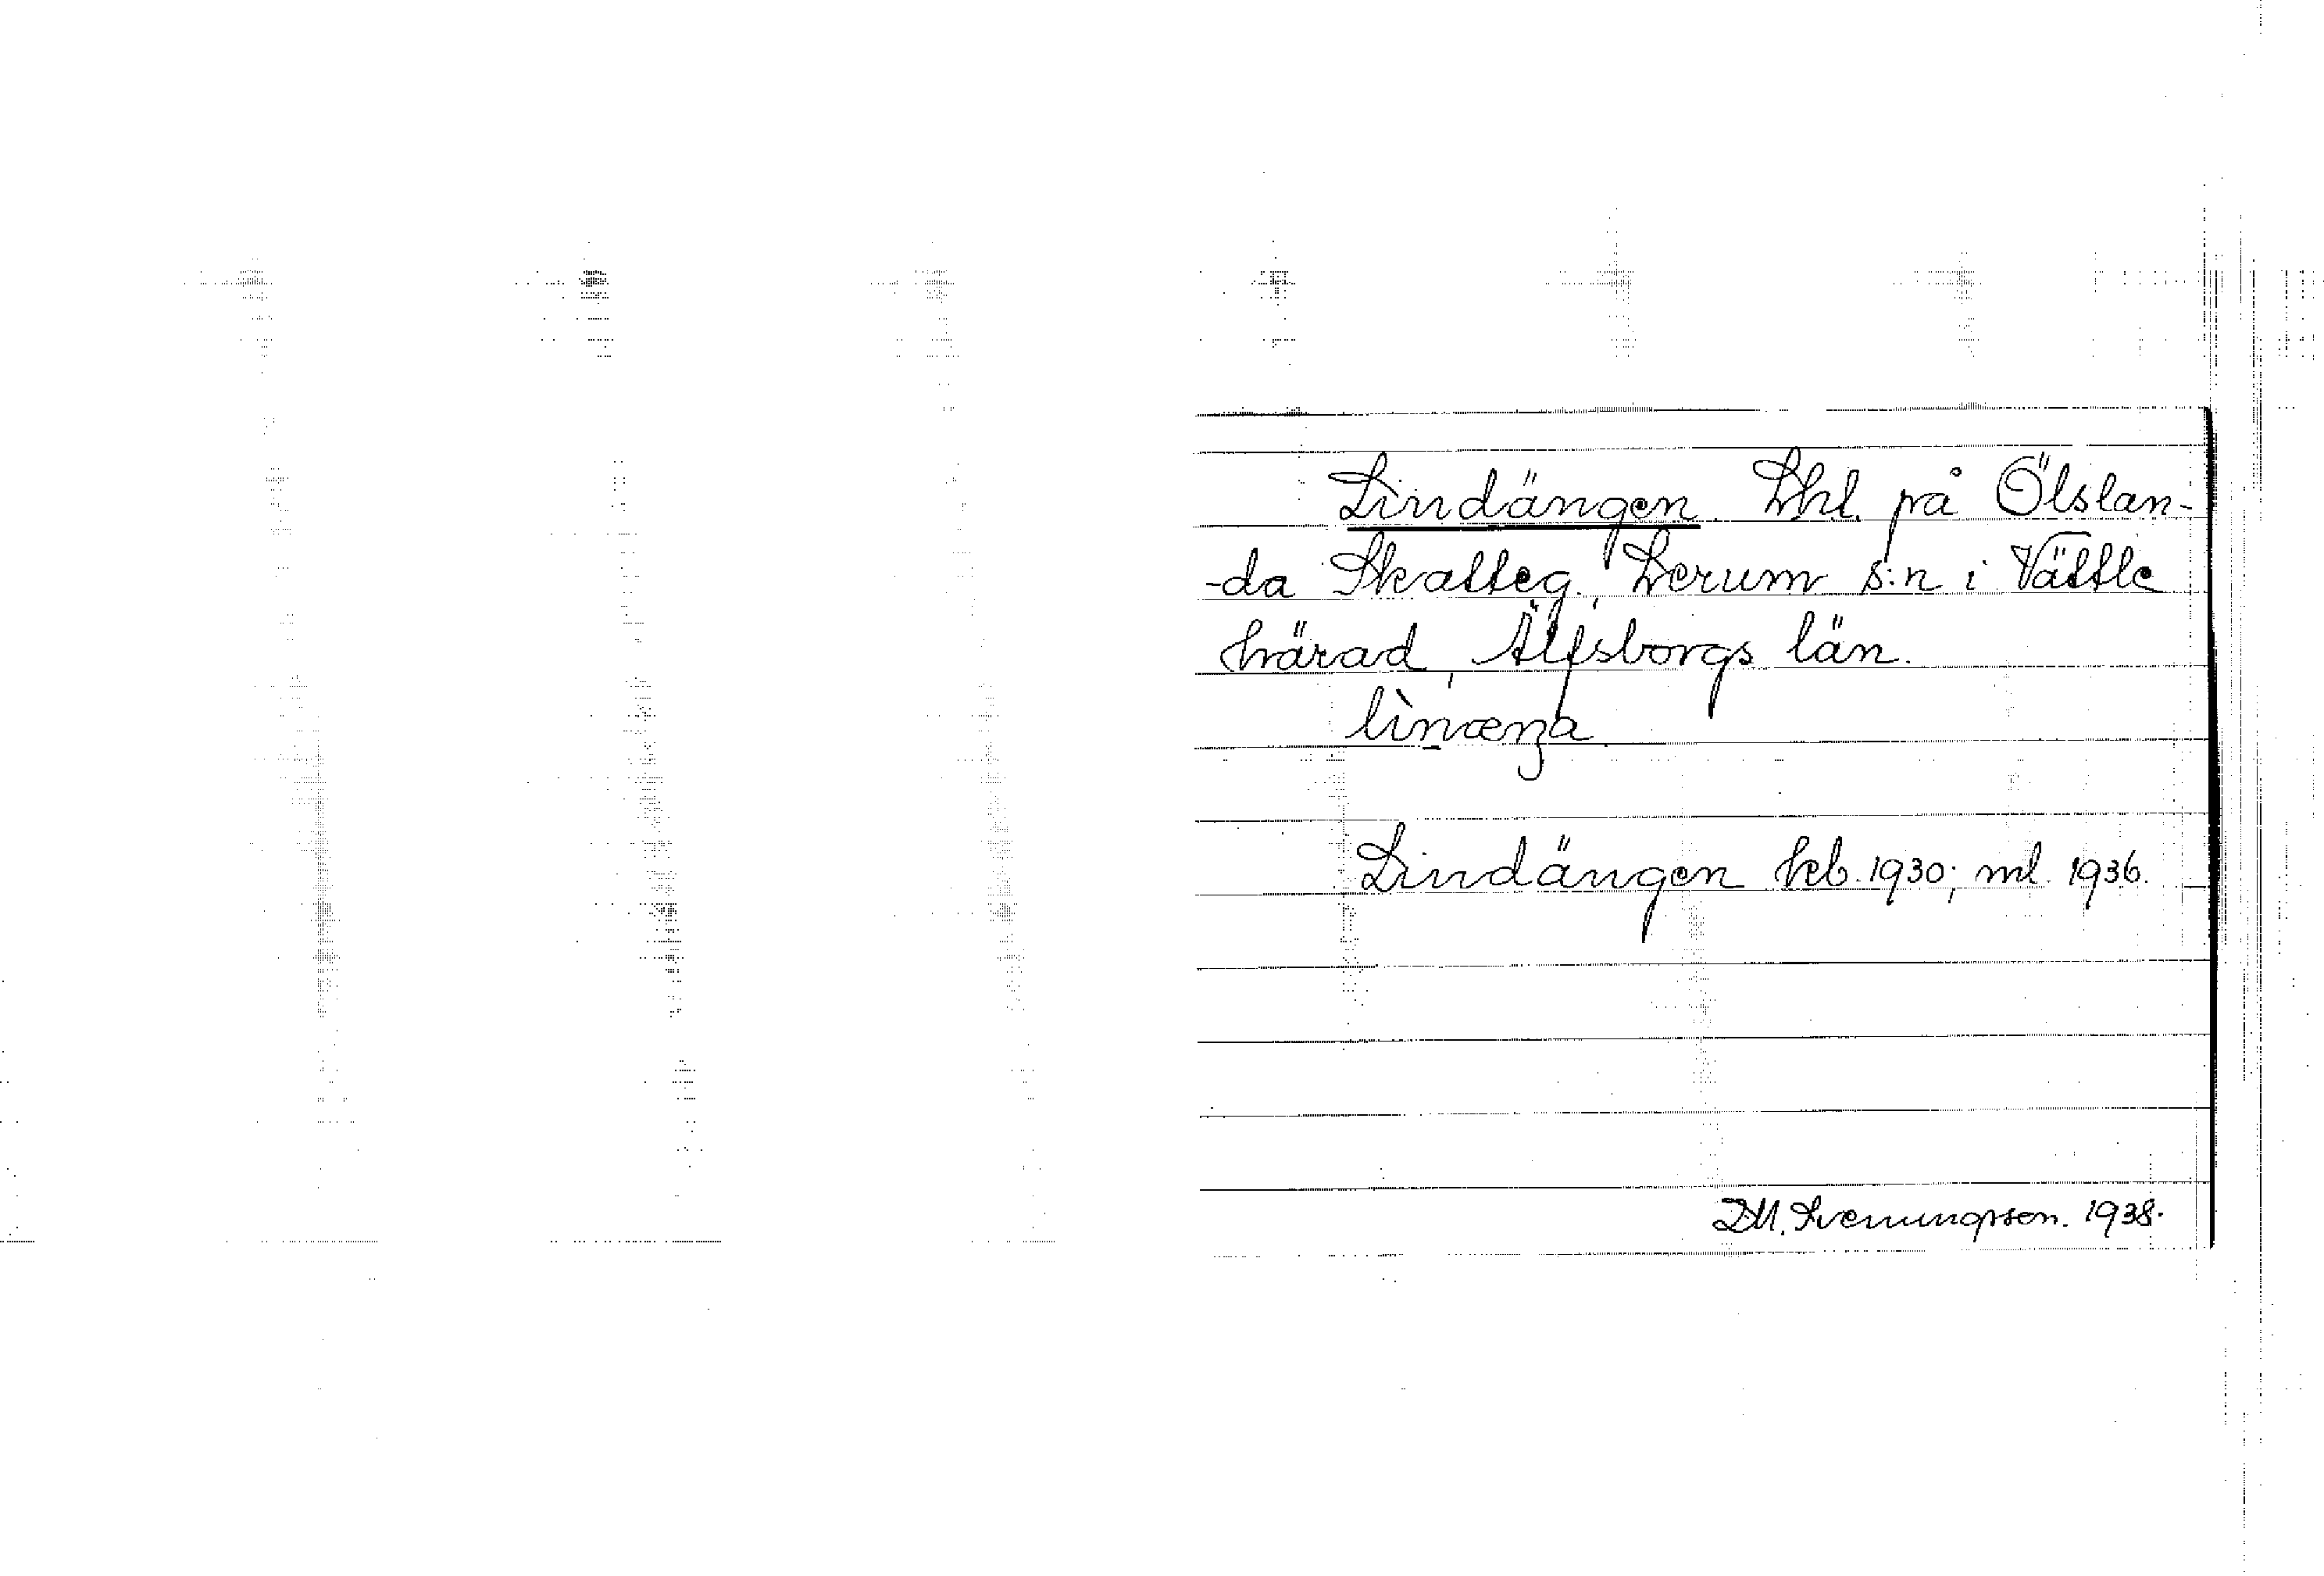 Lindängen. Lhl. på Ölslan-
-da Skatteg., Lerum s:n i Vättle
härad, Älfsborgs län.
lìnænȝa
Lindängen kb. 1930; ml. 1936.
D.M. Svenungsson. 1938.